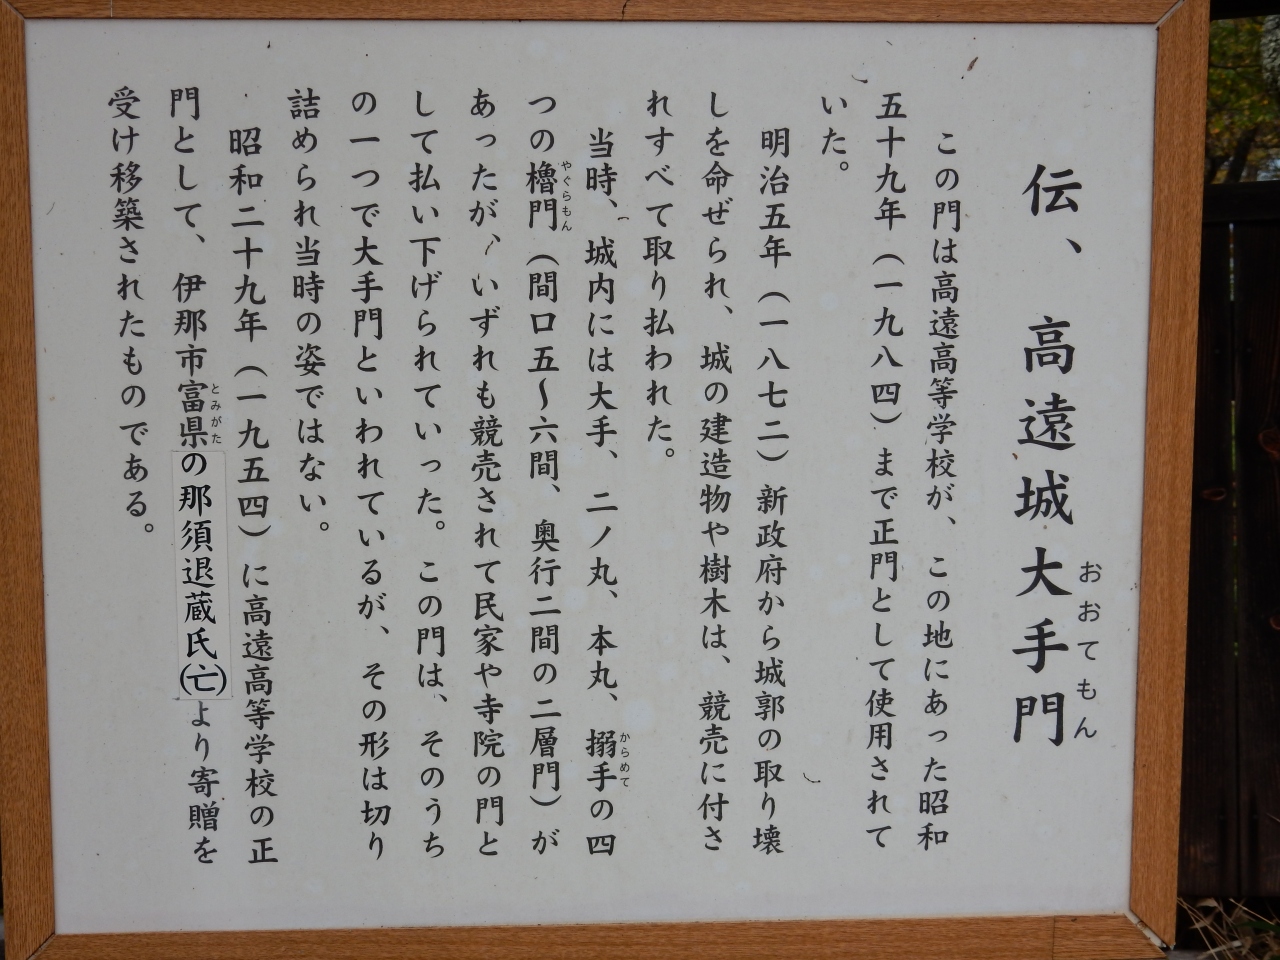 伝、高遠城大手門
おおてもん
この門は高遠高等学校が、この地にあった昭和
五十九年（一九八四）まで正門として使用されて
いた。
明治五年（一八七二）新政府から城郭の取り壊
しを命ぜられ、城の建造物や樹木は、競売に付さ
れすべて取り払われた。
当時、城内には大手、二ノ丸、本丸、搦手の四
からめて
つの櫓門（間口五〜六間、奥行二間の二層門）が
やぐらもん
あったが、いずれも競売されて民家や寺院の門と
して払い下げられていった。この門は、そのうち
の一つで大手門といわれているが、その形は切り
詰められ当時の姿ではない。
昭和二十九年（一九五四）に高遠高等学校の正
門として、伊那市富県の那須退蔵氏(亡)より寄贈を
とみがた
受け移築されたものである。